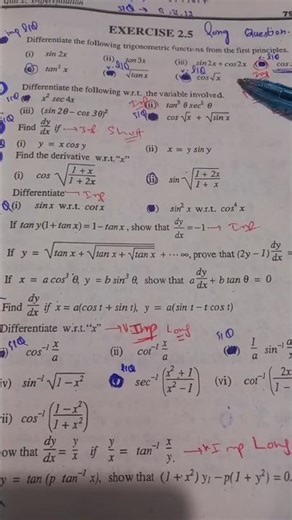 EXERCISE 2.5
Long Question.
Differentiate the following trigonometric functions from the first principles.
(i) sin 2x (ii) tan 3x (iii) sin 2x + cos 2x cos
tan² x √tan x cos √x
Differentiate the following w.r.t. the variable involved.
x² sec 4x tan³ θ sec² θ
(iii) (sin 2θ – cos 3θ)² cos √x + √sin x
Find dy/dx if Imp Short
(i) y = x cos y (ii) x = y sin y
Find the derivative w.r.t. "x"
(i) cos √((1 + x)/(1 + 2x)) (ii) sin √((1 + 2x)/(1 + x))
Differentiate Imp
(i) sin x w.r.t. cot x sin² x w.r.t. cos⁴ x
If tan y(1 + tan x) = 1 – tan x, show that dy/dx = –1 Imp
If y = √(tan x + √(tan x + √(tan x + ⋯ ∞, prove that (2y – 1) dy/dx =
If x = a cos³ θ, y = b sin³ θ, show that a dy/dx + b tan θ = 0
Find dy/dx if x = a(cos t + sin t), y = a(sin t – t cos t)
Differentiate w.r.t. "x" Imp Long
cos⁻¹ x/a (ii) cot⁻¹ x/a 1/a sin⁻¹ a/
iv) sin⁻¹ √(1 – x²) sec⁻¹ ((x² + 1)/(x² – 1)) (vi) cot⁻¹ (2x/1 –
ii) cos⁻¹ ((1 – x²)/(1 + x²))
ow that dy/dx = y/x if y/x = tan⁻¹ x/y. Imp Long
y = tan (p tan⁻¹ x), show that (1 + x²) y₁ – p(1 + y²) = 0.